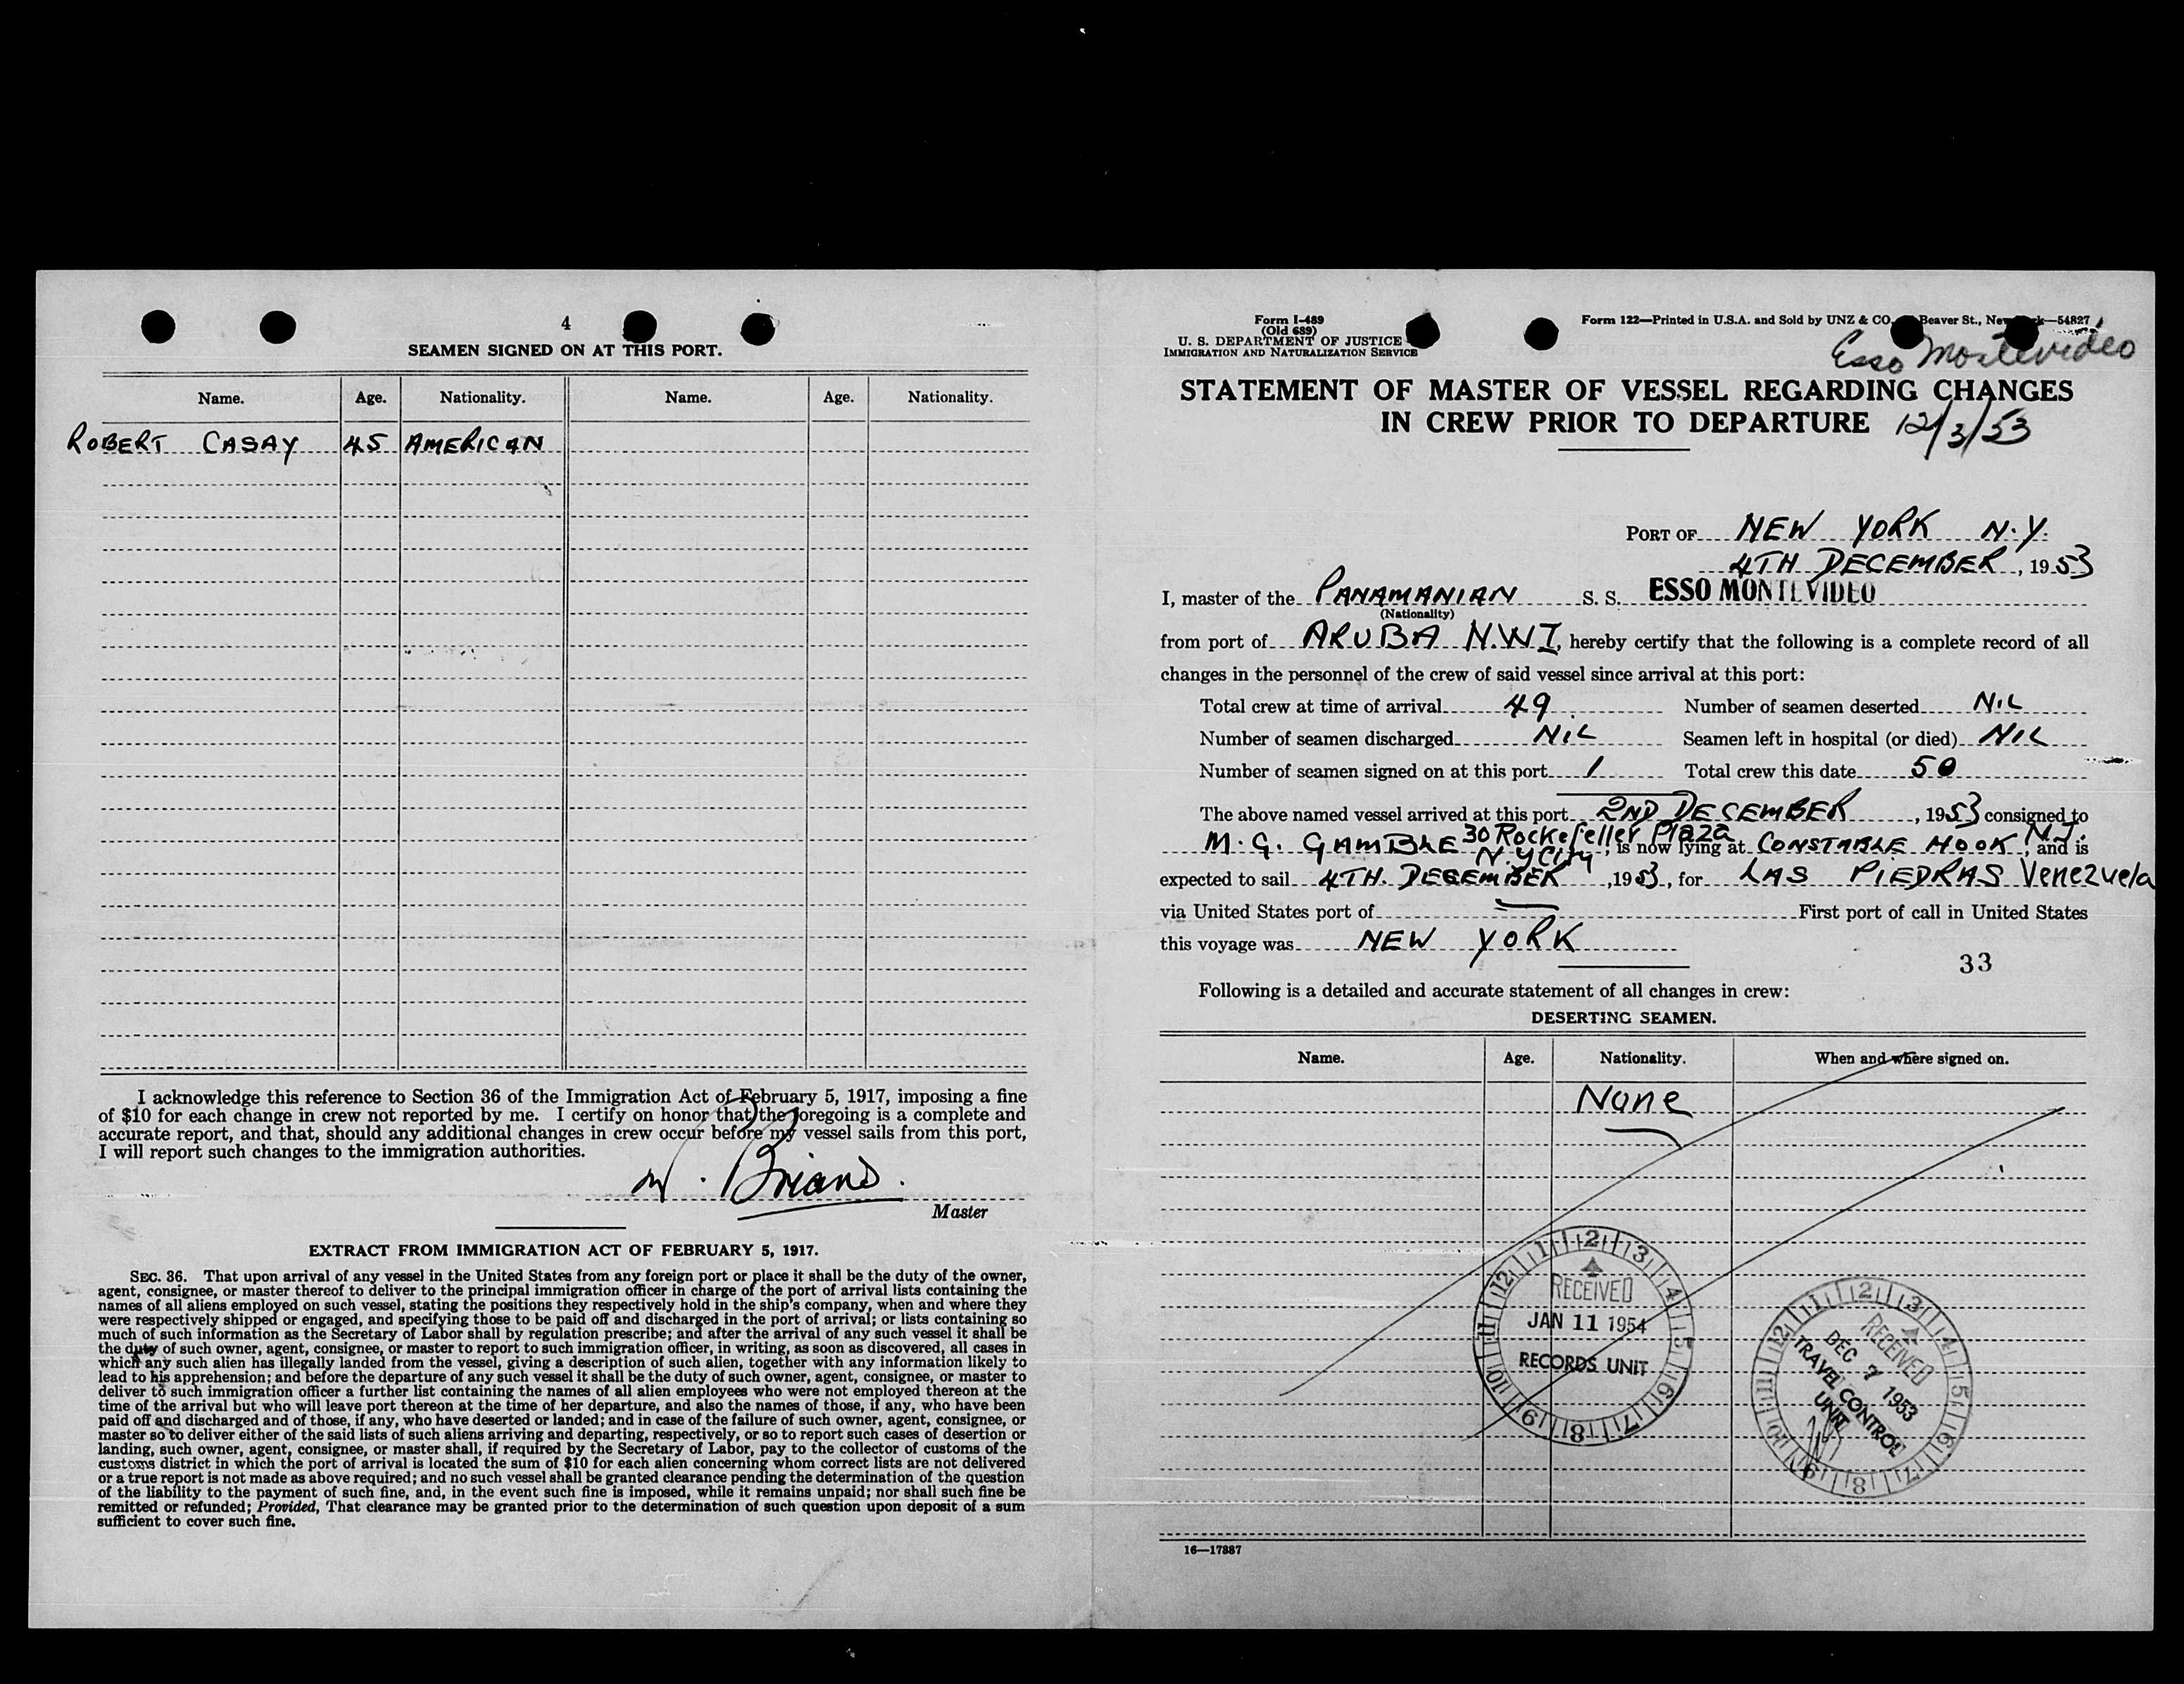 4
SEAMEN SIGNED ON AT THIS PORT.
Name. Age. Nationality. Name. Age. Nationality.
ROBERT CASAY 45 AMERICAN
I acknowledge this reference to Section 36 of the Immigration Act of February 5, 1917, imposing a fine
of $10 for each change in crew not reported by me. I certify on honor that the foregoing is a complete and
accurate report, and that, should any additional changes in crew occur before my vessel sails from this port,
I will report such changes to the immigration authorities.
Master
EXTRACT FROM IMMIGRATION ACT OF FEBRUARY 5, 1917.
SEC. 36. That upon arrival of any vessel in the United States from any foreign port or place it shall be the duty of the owner,
agent, consignee, or master thereof to deliver to the principal immigration officer in charge of the port of arrival lists containing the
names of all aliens employed on such vessel, stating the positions they respectively hold in the ship's company, when and where they
were respectively shipped or engaged, and specifying those to be paid off and discharged in the port of arrival; or lists containing so
much of such information as the Secretary of Labor shall by regulation prescribe; and after the arrival of any such vessel it shall be
the duty of such owner, agent, consignee, or master to report to such immigration officer, in writing, as soon as discovered, all cases in
which any such alien has illegally landed from the vessel, giving a description of such alien, together with any information likely to
lead to his apprehension; and before the departure of any such vessel it shall be the duty of such owner, agent, consignee, or master to
deliver to such immigration officer a further list containing the names of all alien employees who were not employed thereon at the
time of the arrival but who will leave port thereon at the time of her departure, and also the names of those, if any, who have been
paid off and discharged and of those, if any, who have deserted or landed; and in case of the failure of such owner, agent, consignee, or
master so to deliver either of the said lists of such aliens arriving and departing, respectively, or so to report such cases of desertion or
landing, such owner, agent, consignee, or master shall, if required by the Secretary of Labor, pay to the collector of customs of the
customs district in which the port of arrival is located the sum of $10 for each alien concerning whom correct lists are not delivered
or a true report is not made as above required; and no such vessel shall be granted clearance pending the determination of the question
of the liability to the payment of such fine, and, in the event such fine is imposed, while it remains unpaid; nor shall such fine be
remitted or refunded; Provided, That clearance may be granted prior to the determination of such question upon deposit of a sum
sufficient to cover such fine.
Form I-489
(Old 689)
U. S. DEPARTMENT OF JUSTICE
IMMIGRATION AND NATURALIZATION SERVICE
Form 122—Printed in U.S.A. and Sold by UNZ & CO. Beaver St., New —54827
Esso Montevideo
STATEMENT OF MASTER OF VESSEL REGARDING CHANGES
IN CREW PRIOR TO DEPARTURE 12/3/53
PORT OF NEW YORK N.Y.
4TH DECEMBER, 1953
I, master of the PANAMANIAN S. S. ESSO MONTEVIDEO
(Nationality)
from port of ARUBA N.W.I, hereby certify that the following is a complete record of all
changes in the personnel of the crew of said vessel since arrival at this port:
Total crew at time of arrival 49 Number of seamen deserted NIL
Number of seamen discharged NIL Seamen left in hospital (or died) NIL
Number of seamen signed on at this port 1 Total crew this date 50
The above named vessel arrived at this port 2ND DECEMBER, 1953 consigned to
M. G. GAMBLE 30 Rockefeller Plaza N.Y City, is now lying at CONSTABLE HOOK N.J., and is
expected to sail 4TH. DECEMBER, 1953, for LAS PIEDRAS Venezuela
via United States port of First port of call in United States
this voyage was NEW YORK
33
Following is a detailed and accurate statement of all changes in crew:
DESERTING SEAMEN.
Name. Age. Nationality. When and where signed on.
None
12 1 2 3 4 5 6 7 8 9 10 11
RECEIVED
JAN 11 1954
RECORDS UNIT
12 1 2 3 4 5 6 7 8 9 10 11
RECEIVED
DEC 7 1953
TRAVEL CONTROL
UNIT
16—17887